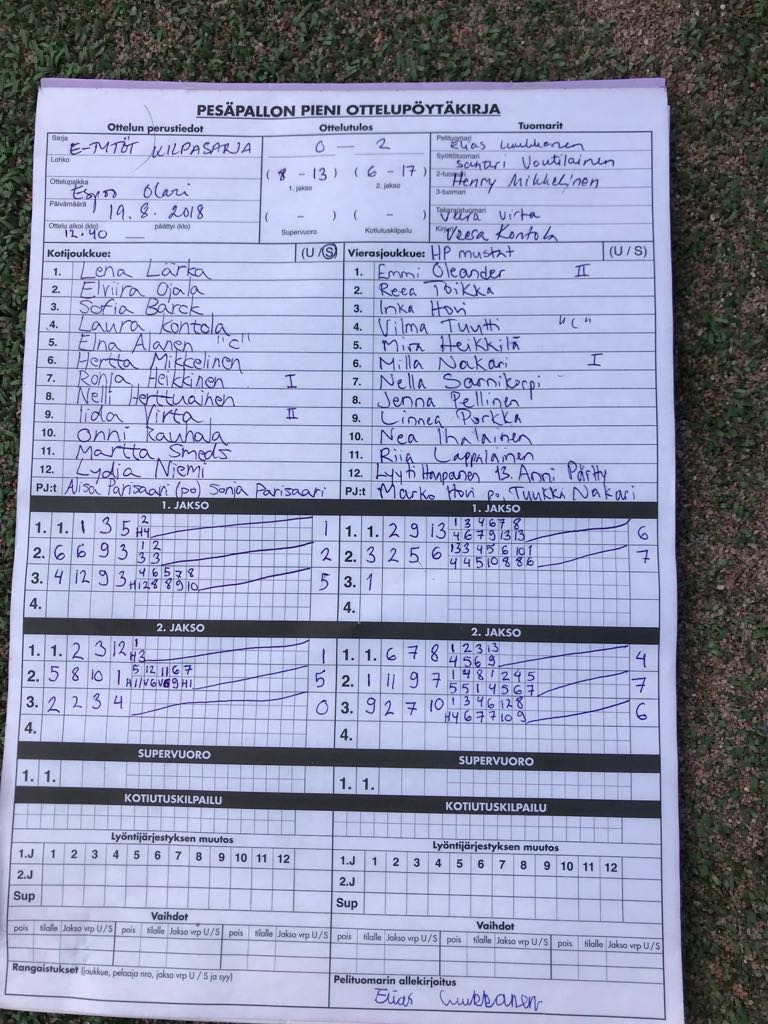 PESÄPALLON PIENI OTTELUPÖYTÄKIRJA
Ottelun perustiedot Ottelutulos Tuomarit
Sarja E-TYTÖT KILPASARJA 0 — 2 Pelituomari Elias Luukkanen
Lohko Syöttötuomari Santeri Voutilainen
(8 - 13) (6 - 17) 2-tuomari Henry Mikkelinen
Ottelupaikka Espoo Olari 1. jakso 2. jakso 3-tuomari
Päivämäärä 19.8.2018 ( - ) ( - ) Takarajatuomari Veera Virta
Ottelu alkoi (klo) 12.40 päättyi (klo) — Supervuoro Kotiutuskilpailu Kirjuri Veesa Kontola
Kotijoukkue: (U / S)
1. Lena Lärka
2. Elviira Ojala
3. Sofia Barck
4. Laura Kontola
5. Elna Alanen "C"
6. Hertta Mikkelinen
7. Ronja Heikkinen I
8. Nelli Herttuainen
9. Iida Virta II
10. Onni Rauhala
11. Martta Smeds
12. Lydia Niemi
PJ:t Alisa Parisaari (po) Sonja Parisaari
Vierasjoukkue: HP mustat (U / S)
1. Emmi Oleander II
2. Reea Toikka
3. Inka Hovi
4. Vilma Tuytti "C"
5. Mira Heikkilä
6. Milla Nakari I
7. Nella Sarnikorpi
8. Jenna Pellinen
9. Linnea Porkka
10. Nea Ihalainen
11. Riia Lappalainen
12. Lyyti Honpanen 13. Anni Pärtty
PJ:t Marko Hovi po, Tuukka Nakari
1. JAKSO
1. 1. 1 3 5 2 1
H4
2. 6 6 9 3 1 2 2
3 3
3. 4 12 9 3 4 6 5 7 8 5
H12 8 8 9 10
4.
1. JAKSO
1. 1. 2 9 13 1 3 4 6 7 8 6
4 6 7 9 13 13
2. 3 2 5 6 13 3 4 5 6 10 1 7
4 4 5 10 8 8 6
3. 1
4.
2. JAKSO
1. 1. 2 3 12 1 1
H3
2. 5 8 10 1 5 12 11 6 7 5
3. 2 2 3 4 0
4.
2. JAKSO
1. 1. 6 7 8 1 2 3 13 4
4 5 6 9
2. 1 11 9 7 1 4 8 1 2 4 5 7
5 5 1 4 5 6 7
3. 9 2 7 10 1 3 4 6 12 8 6
H4 6 7 7 10 9
4.
SUPERVUORO SUPERVUORO
1. 1. 1. 1.
KOTIUTUSKILPAILU KOTIUTUSKILPAILU
Lyöntijärjestyksen muutos Lyöntijärjestyksen muutos
1.J 1 2 3 4 5 6 7 8 9 10 11 12 1.J 1 2 3 4 5 6 7 8 9 10 11 12
2.J 2.J
Sup Sup
Vaihdot Vaihdot
pois tilalle Jakso vrp U / S pois tilalle Jakso vrp U / S pois tilalle Jakso vrp U / S pois tilalle Jakso vrp U / S pois tilalle Jakso vrp U / S pois tilalle Jakso vrp U / S
Rangaistukset (joukkue, pelaaja nro, jakso vrp U / S ja syy) Pelituomarin allekirjoitus
Elias Luukkanen